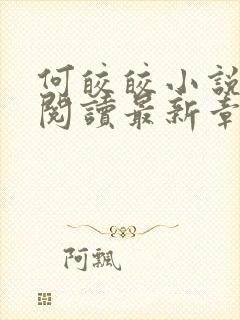 何皎皎小說
閱讀最新章
阿飄